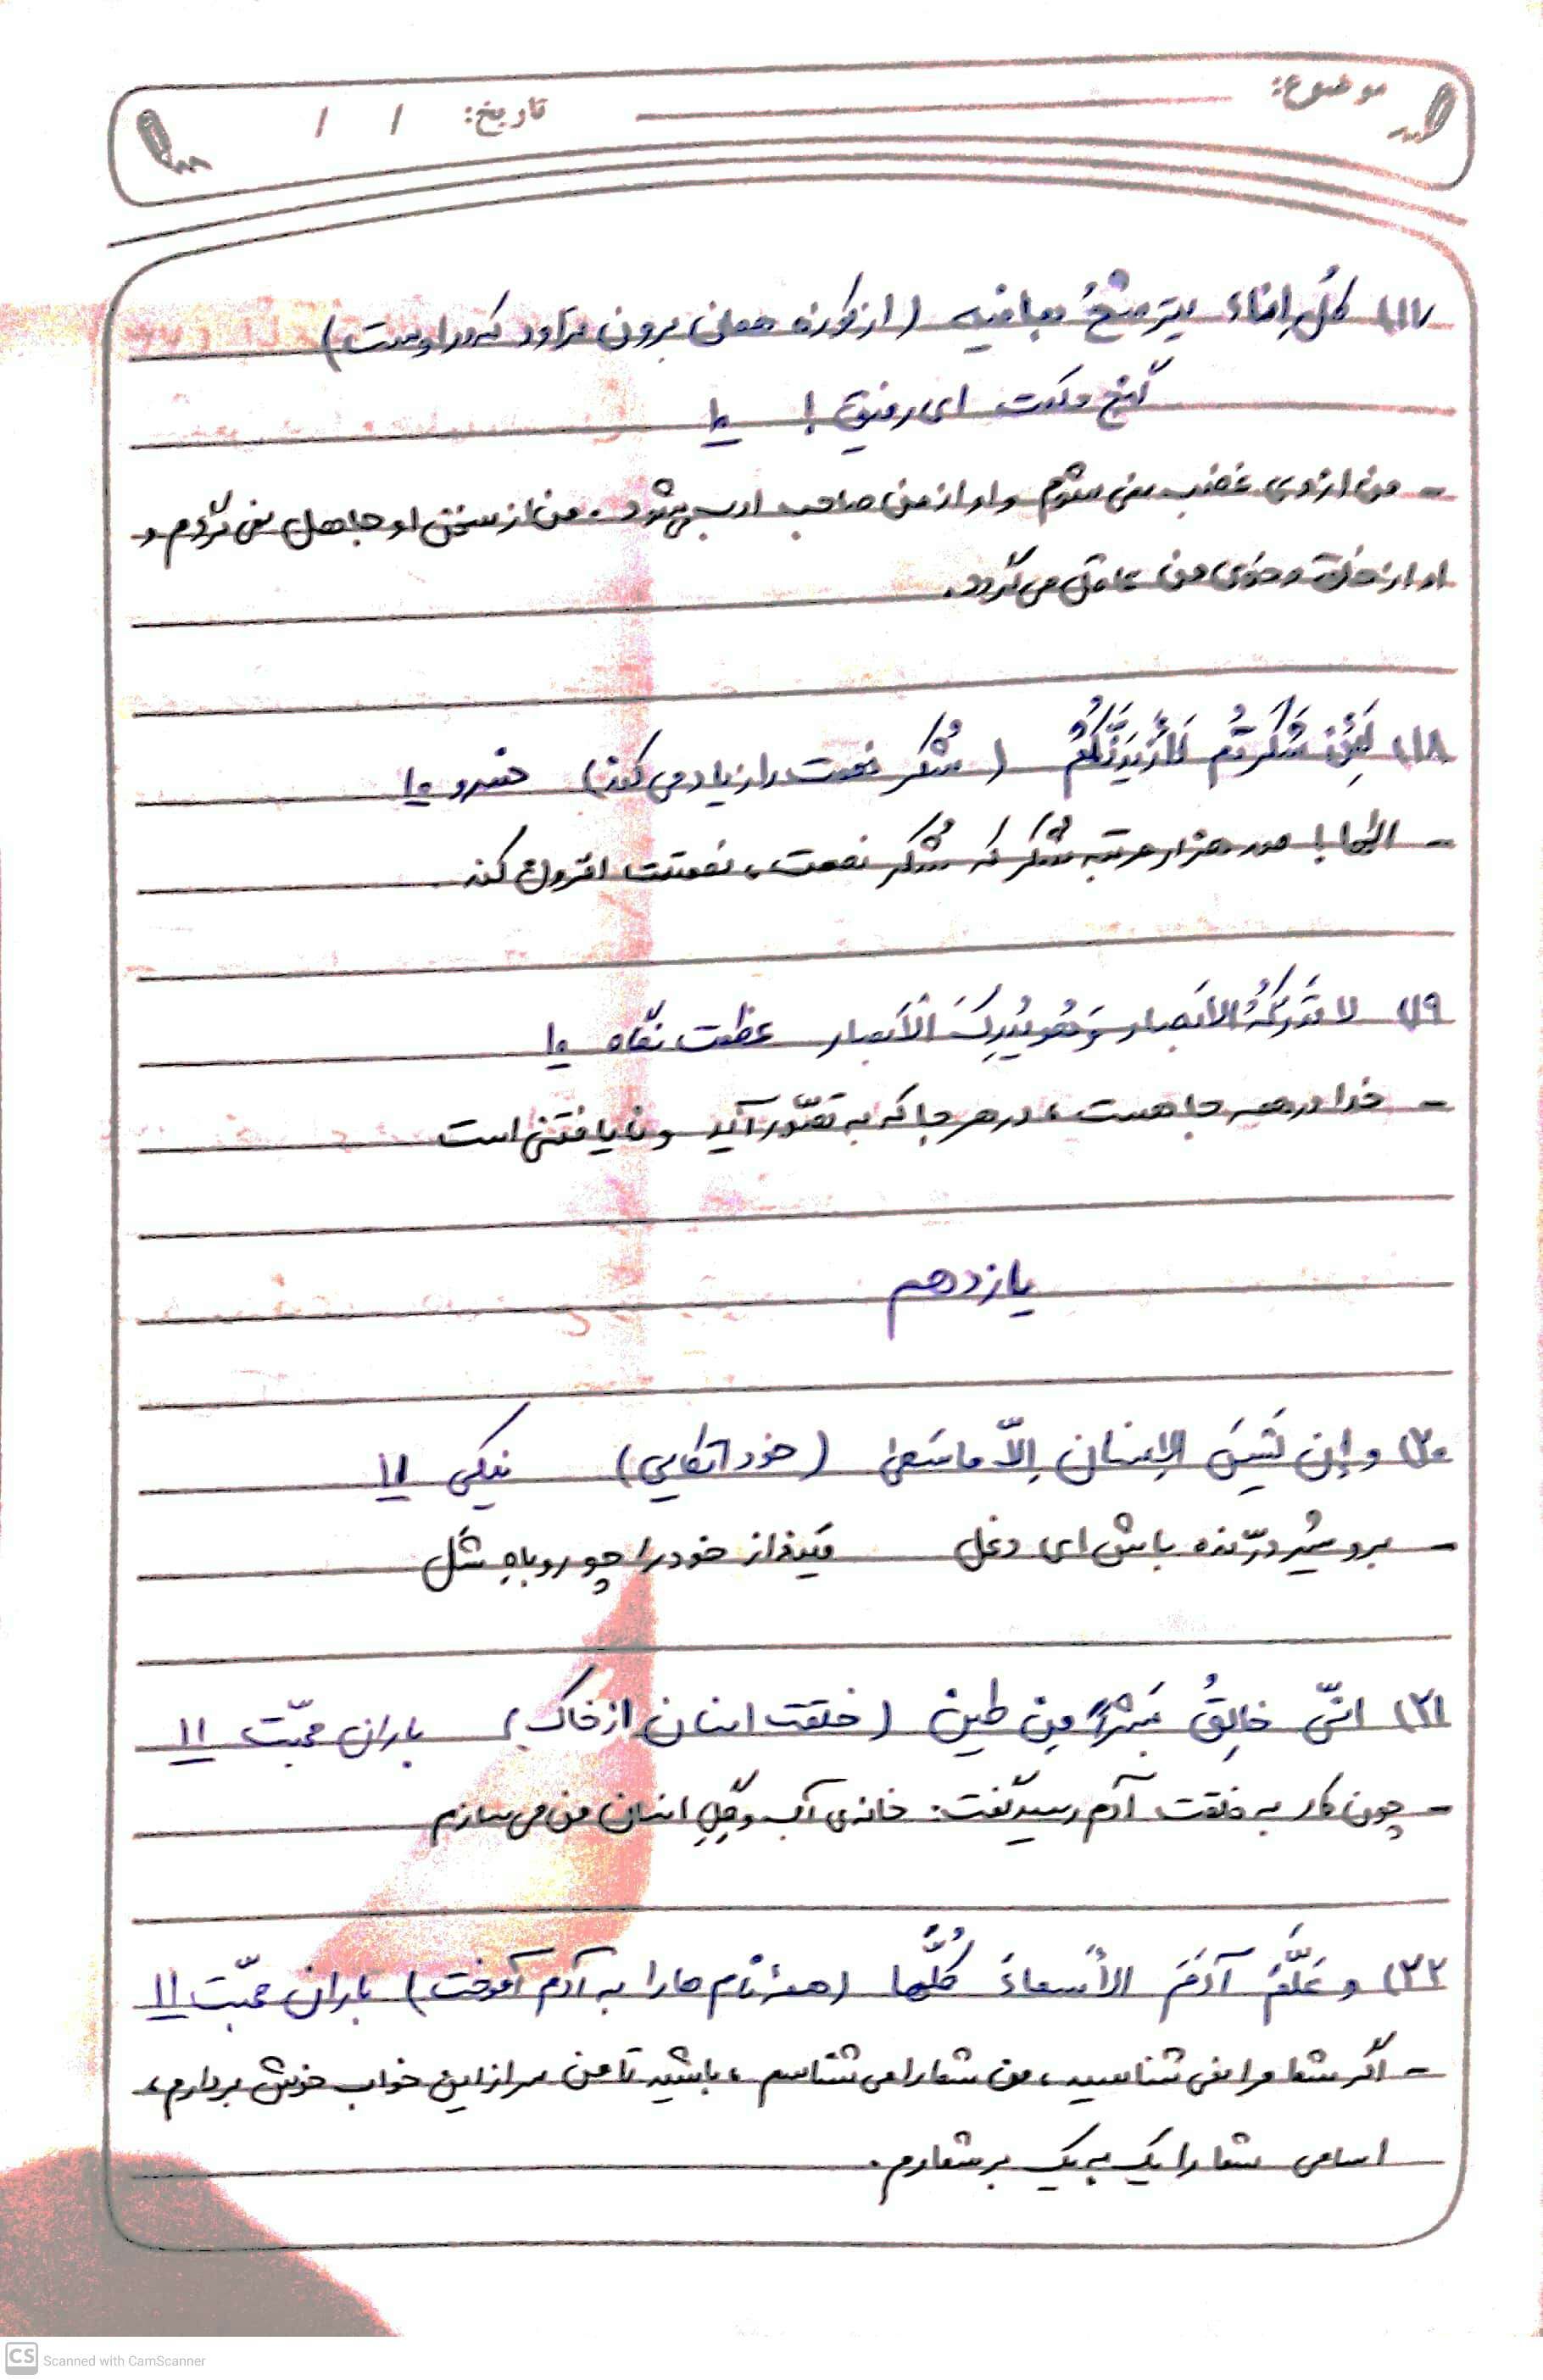 موضوع:
تاریخ: / /
۱۱۷) کلُّ اِناءٍ یترشحُ بما فیه (از کوزه همان برون تراود که در اوست)
گنج حکمت ای رفیق! ۱۰
- من از وی غضب نمی شوم و او از من صاحب ادب می شود. من از سخن او جاهل نمی گردم و
او از خلق و خوی من عاقل می گردد.
۱۱۸) لَئِن شَکَرتُم لَأَزیدَنَّکُم (شُکر نعمت را زیاد می کند) خسرو ۱۰
- الها! صد هزار مرتبه شُکر که شُکر نعمت، نعمتت افزون کند
۱۱۹) لا تُدرِکُهُ الاَبصار وَ هُوَ یُدرِکُ الْاَبصار عظمت نگاه ۱۰
- خدا در همه جا هست، در هر جا که به تصّور آید و نایافتنی است
یازدهم
۲۰) و اِن لَیسَ الاِنسان اِلّا ما سَعیٰ (خود اتکایی) نیکی ۱۱
- برو شیر درّنده باش ای دغل مَیَنداز خود را چو روباهِ شَل
۲۱) انّی خالِقُ بَشَراً مِن طین (خلقت انسان از خاک) باران محبّت ۱۱
- چون کار به خلقت آدم رسید گفت: خانه ی آب و گِلِ انسان من می سازم
۲۲) و عَلَّمَ آدَمَ الأسماءَ کُلَّها (همهٔ نام ها را به آدم آموخت) باران محبّت ۱۱
- اگر شما مرا نمی شناسید، من شما را می شناسم، باشید تا من سر از این خواب خوش بردارم،
اسامی شما را یک به یک بر شمارم.
CS Scanned with CamScanner